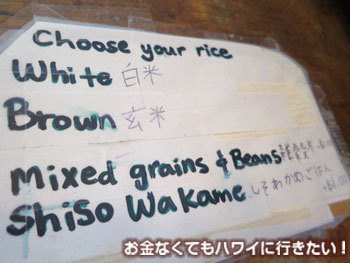 Choose your rice
White 白米
Brown 玄米
Mixed grains & Beans
Shiso Wakame しそわかめごはん
お金なくてもハワイに行きたい!